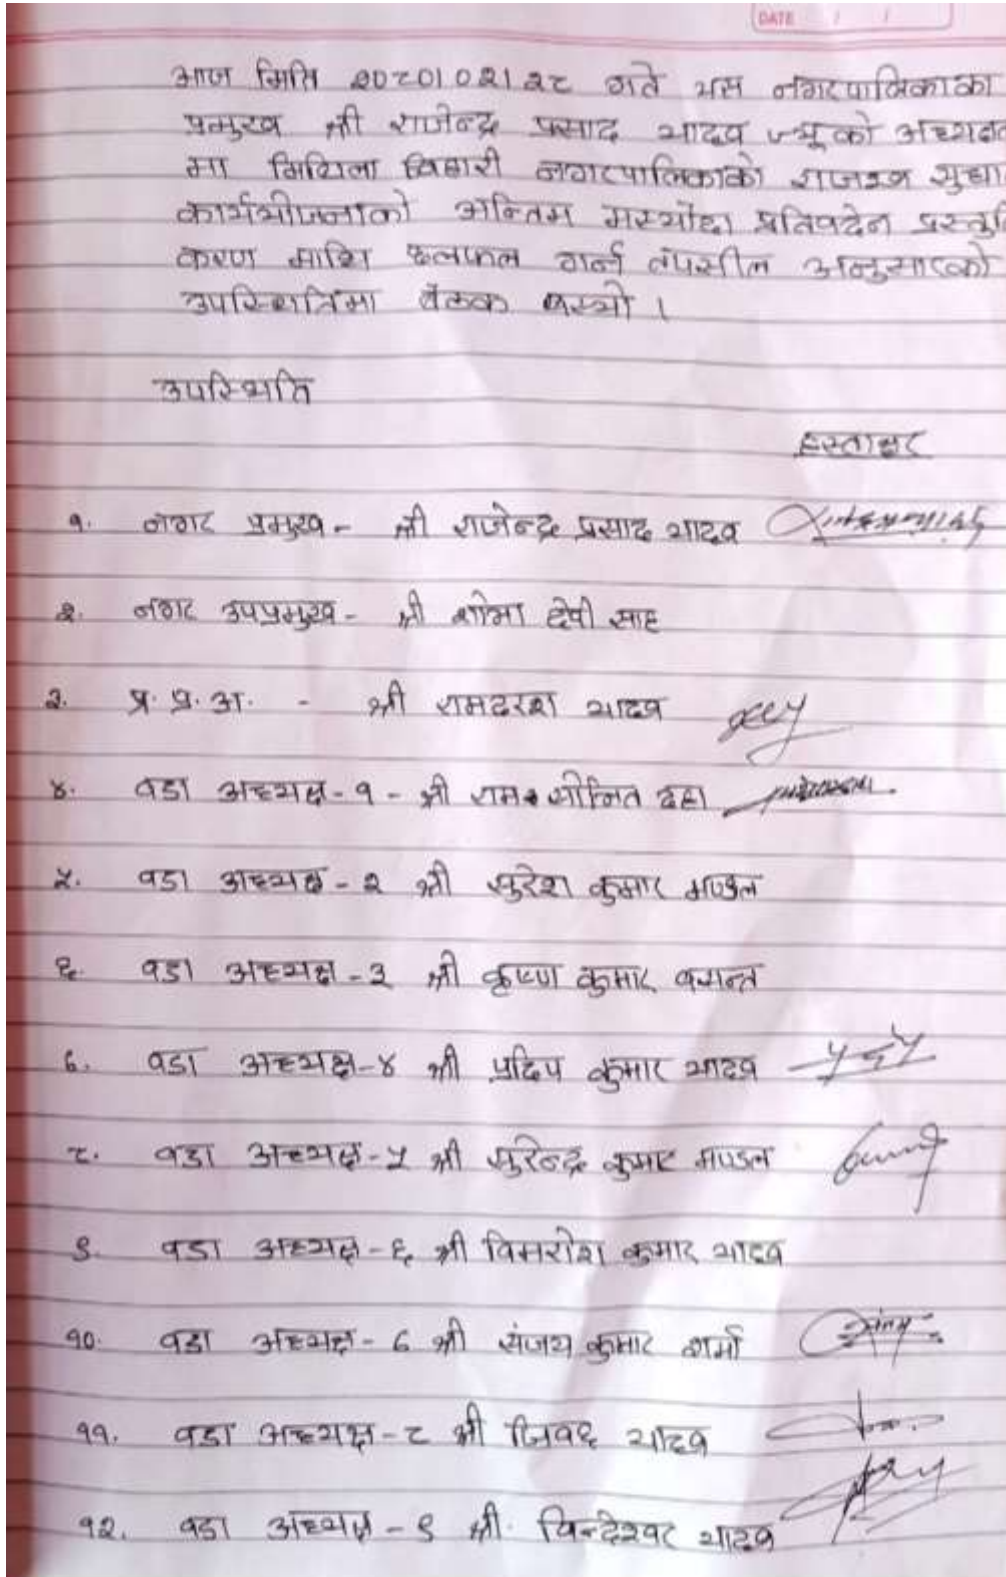 DATE / /
आज मिति २०८०।०२।२८ गते यस नगरपालिकाका
प्रमुख श्री राजेन्द्र प्रसाद यादव ज्यूको अध्यक्षत
मा मिथिला बिहारी नगरपालिकाको राजश्व सुधा
कार्ययोजनाको अन्तिम मस्यौदा प्रतिवदेन प्रस्तुति
करण माथि छलफल गर्न तपसील अनुसारको
उपस्थितिमा बैठक बस्यो ।
उपस्थिति
हस्ताक्षर
१. नगर प्रमुख - श्री राजेन्द्र प्रसाद यादव
२. नगर उपप्रमुख - श्री शोभा देवी साह
३. प्र. प्र. अ. - श्री रामदरश यादव
४. वडा अध्यक्ष - १ - श्री राम सोनित दहा
५. वडा अध्यक्ष - २ श्री सुरेश कुमार मण्डल
६. वडा अध्यक्ष - ३ श्री कृष्ण कुमार बसन्त
७. वडा अध्यक्ष - ४ श्री प्रदिप कुमार यादव
८. वडा अध्यक्ष - ५ श्री सुरेन्द्र कुमार मण्डल
९. वडा अध्यक्ष - ६ श्री कुमार यादव
१०. वडा अध्यक्ष - ७ श्री संजय कुमार शर्मा
११. वडा अध्यक्ष - ८ श्री जिवछ यादव
१२. वडा अध्यक्ष - ९ श्री. विन्देश्वर यादव